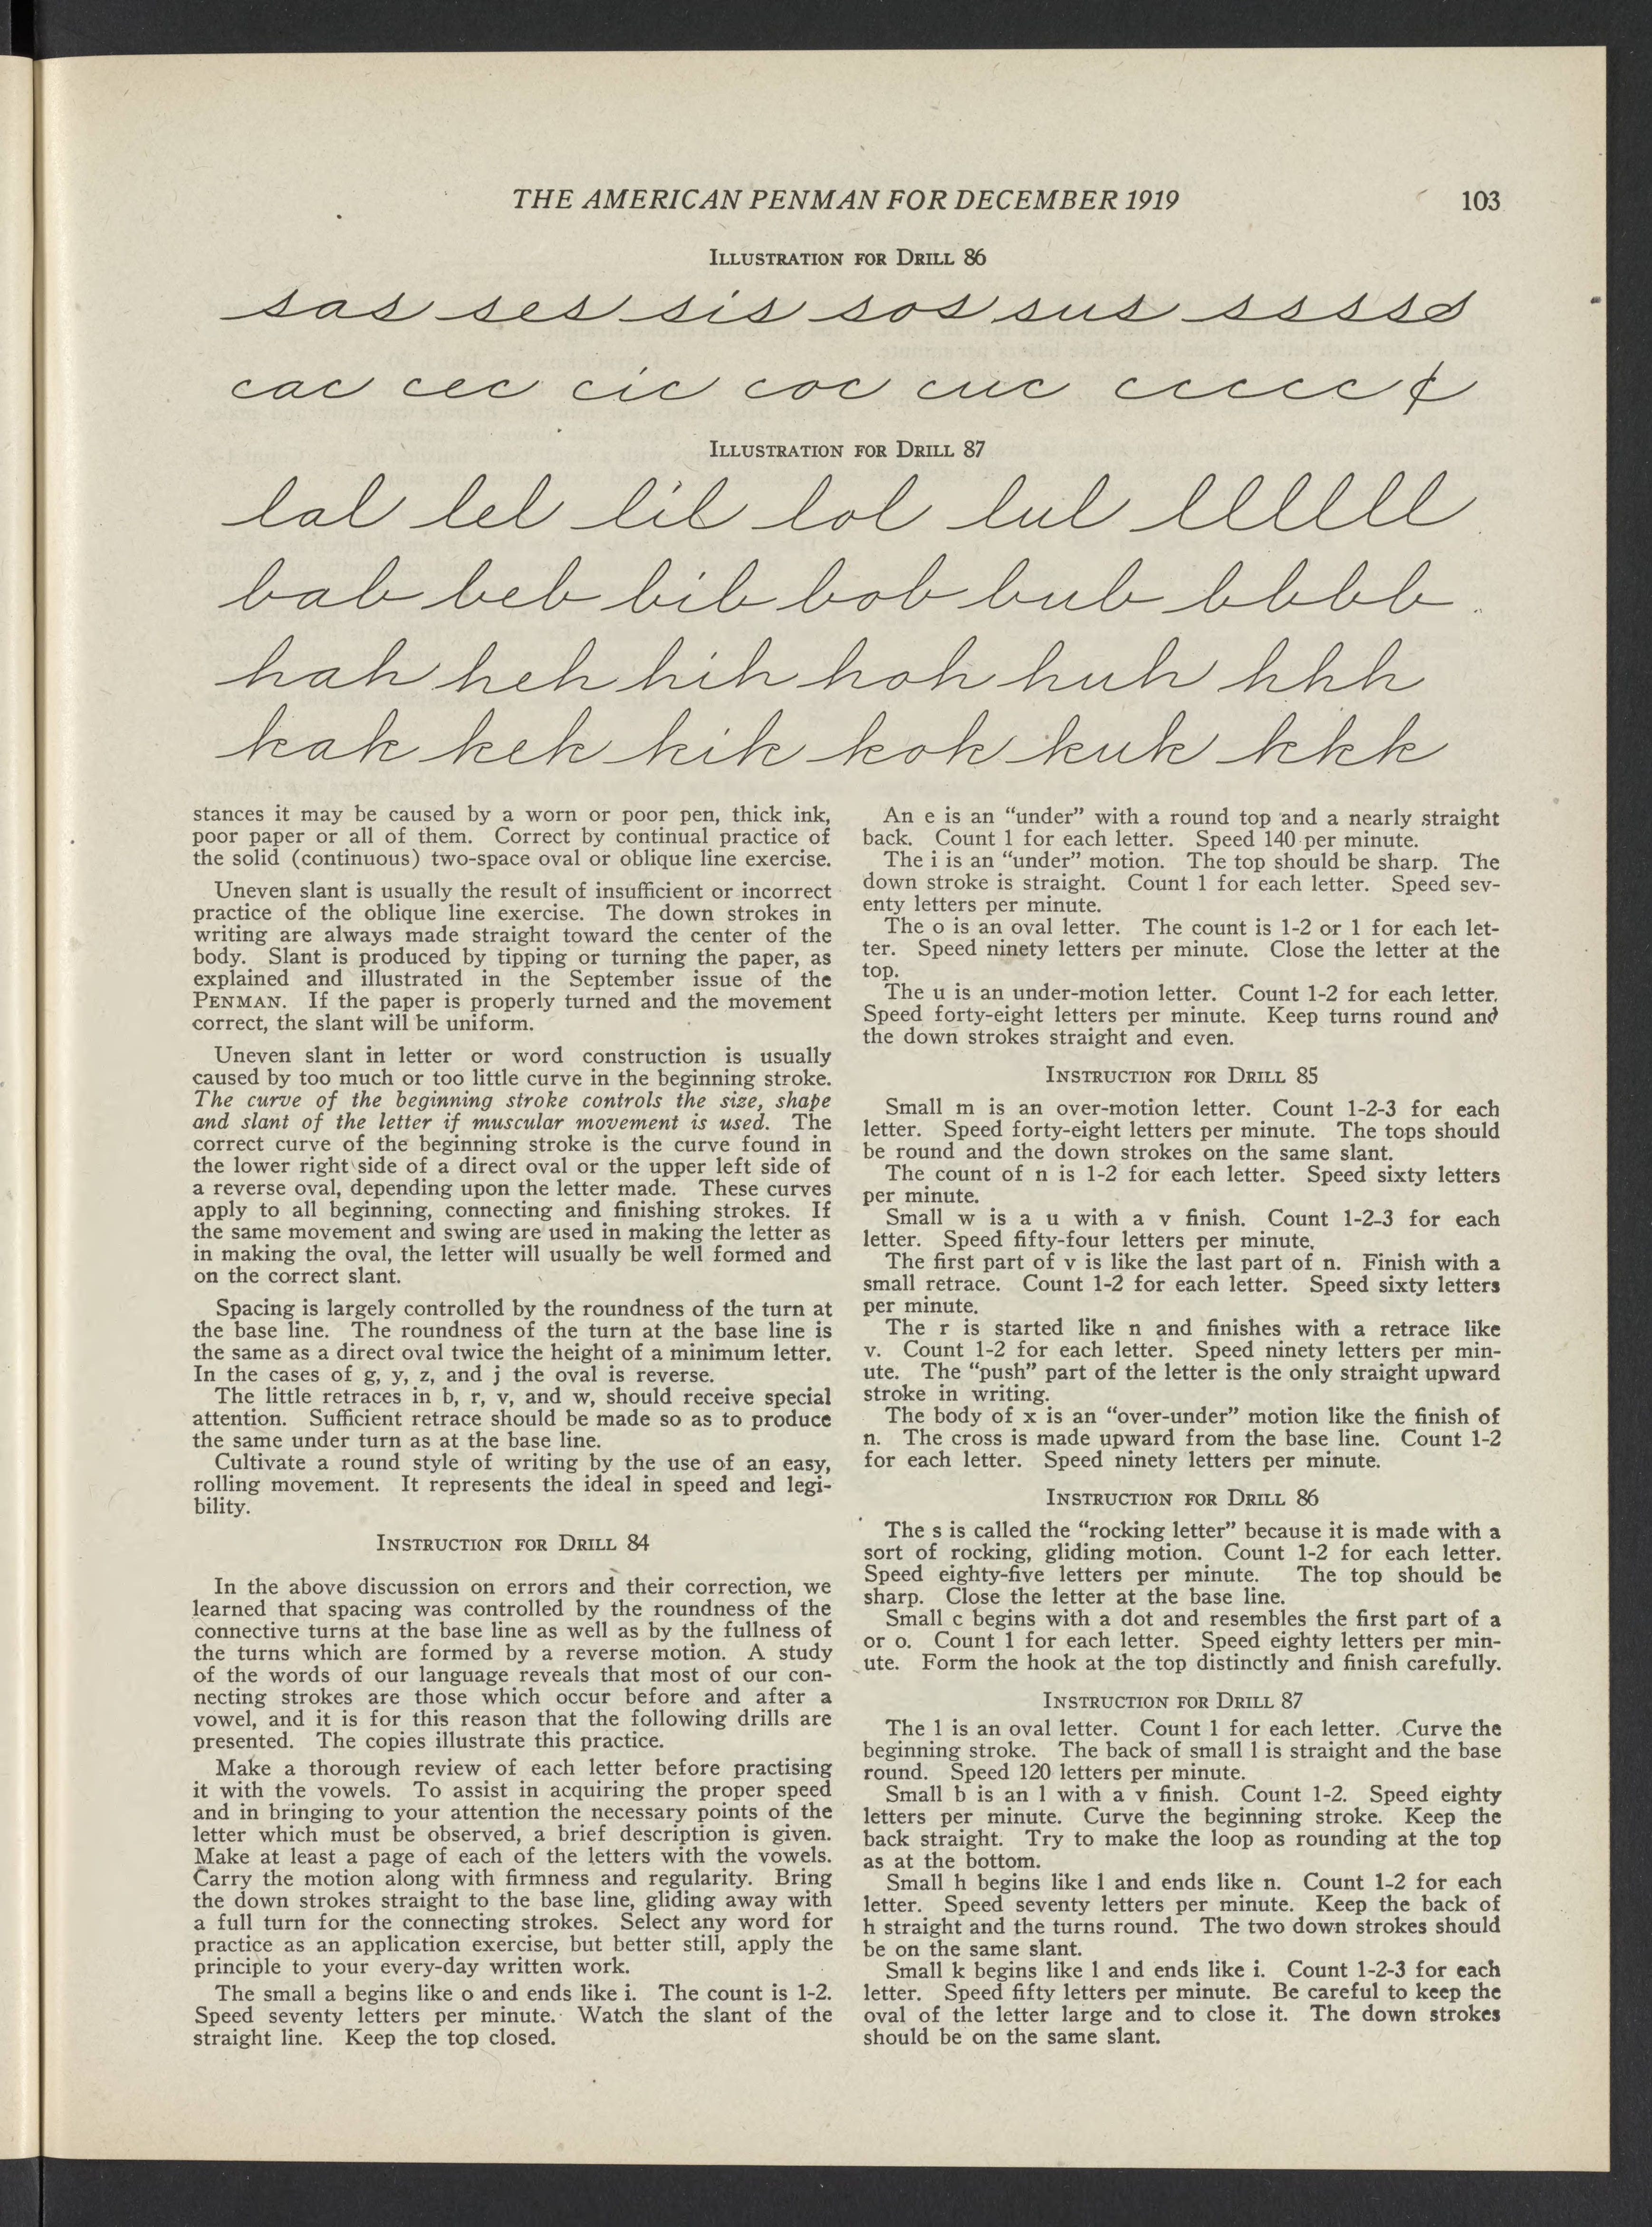 THE AMERICAN PENMAN FOR DECEMBER 1919 103
ILLUSTRATION FOR DRILL 86
sas ses sis sos sus s s s s s
cac cec cic coc cuc c c c c c ¢
ILLUSTRATION FOR DRILL 87
lal lel lil lol lul llllll
bab beb bib bob bub bbbb
hah heh hih hoh huh hhh
kak kek kik kok kuk kkk
stances it may be caused by a worn or poor pen, thick ink,
poor paper or all of them. Correct by continual practice of
the solid (continuous) two-space oval or oblique line exercise.
Uneven slant is usually the result of insufficient or incorrect
practice of the oblique line exercise. The down strokes in
writing are always made straight toward the center of the
body. Slant is produced by tipping or turning the paper, as
explained and illustrated in the September issue of the
PENMAN. If the paper is properly turned and the movement
correct, the slant will be uniform.
Uneven slant in letter or word construction is usually
caused by too much or too little curve in the beginning stroke.
The curve of the beginning stroke controls the size, shape
and slant of the letter if muscular movement is used. The
correct curve of the beginning stroke is the curve found in
the lower right side of a direct oval or the upper left side of
a reverse oval, depending upon the letter made. These curves
apply to all beginning, connecting and finishing strokes. If
the same movement and swing are used in making the letter as
in making the oval, the letter will usually be well formed and
on the correct slant.
Spacing is largely controlled by the roundness of the turn at
the base line. The roundness of the turn at the base line is
the same as a direct oval twice the height of a minimum letter.
In the cases of g, y, z, and j the oval is reverse.
The little retraces in b, r, v, and w, should receive special
attention. Sufficient retrace should be made so as to produce
the same under turn as at the base line.
Cultivate a round style of writing by the use of an easy,
rolling movement. It represents the ideal in speed and legi-
bility.
INSTRUCTION FOR DRILL 84
In the above discussion on errors and their correction, we
learned that spacing was controlled by the roundness of the
connective turns at the base line as well as by the fullness of
the turns which are formed by a reverse motion. A study
of the words of our language reveals that most of our con-
necting strokes are those which occur before and after a
vowel, and it is for this reason that the following drills are
presented. The copies illustrate this practice.
Make a thorough review of each letter before practising
it with the vowels. To assist in acquiring the proper speed
and in bringing to your attention the necessary points of the
letter which must be observed, a brief description is given.
Make at least a page of each of the letters with the vowels.
Carry the motion along with firmness and regularity. Bring
the down strokes straight to the base line, gliding away with
a full turn for the connecting strokes. Select any word for
practice as an application exercise, but better still, apply the
principle to your every-day written work.
The small a begins like o and ends like i. The count is 1-2.
Speed seventy letters per minute. Watch the slant of the
straight line. Keep the top closed.
An e is an “under” with a round top and a nearly straight
back. Count 1 for each letter. Speed 140 per minute.
The i is an “under” motion. The top should be sharp. The
down stroke is straight. Count 1 for each letter. Speed sev-
enty letters per minute.
The o is an oval letter. The count is 1-2 or 1 for each let-
ter. Speed ninety letters per minute. Close the letter at the
top.
The u is an under-motion letter. Count 1-2 for each letter.
Speed forty-eight letters per minute. Keep turns round and
the down strokes straight and even.
INSTRUCTION FOR DRILL 85
Small m is an over-motion letter. Count 1-2-3 for each
letter. Speed forty-eight letters per minute. The tops should
be round and the down strokes on the same slant.
The count of n is 1-2 for each letter. Speed sixty letters
per minute.
Small w is a u with a v finish. Count 1-2-3 for each
letter. Speed fifty-four letters per minute.
The first part of v is like the last part of n. Finish with a
small retrace. Count 1-2 for each letter. Speed sixty letters
per minute.
The r is started like n and finishes with a retrace like
v. Count 1-2 for each letter. Speed ninety letters per min-
ute. The “push” part of the letter is the only straight upward
stroke in writing.
The body of x is an “over-under” motion like the finish of
n. The cross is made upward from the base line. Count 1-2
for each letter. Speed ninety letters per minute.
INSTRUCTION FOR DRILL 86
The s is called the “rocking letter” because it is made with a
sort of rocking, gliding motion. Count 1-2 for each letter.
Speed eighty-five letters per minute. The top should be
sharp. Close the letter at the base line.
Small c begins with a dot and resembles the first part of a
or o. Count 1 for each letter. Speed eighty letters per min-
ute. Form the hook at the top distinctly and finish carefully.
INSTRUCTION FOR DRILL 87
The l is an oval letter. Count 1 for each letter. Curve the
beginning stroke. The back of small l is straight and the base
round. Speed 120 letters per minute.
Small b is an l with a v finish. Count 1-2. Speed eighty
letters per minute. Curve the beginning stroke. Keep the
back straight. Try to make the loop as rounding at the top
as at the bottom.
Small h begins like l and ends like n. Count 1-2 for each
letter. Speed seventy letters per minute. Keep the back of
h straight and the turns round. The two down strokes should
be on the same slant.
Small k begins like l and ends like i. Count 1-2-3 for each
letter. Speed fifty letters per minute. Be careful to keep the
oval of the letter large and to close it. The down strokes
should be on the same slant.